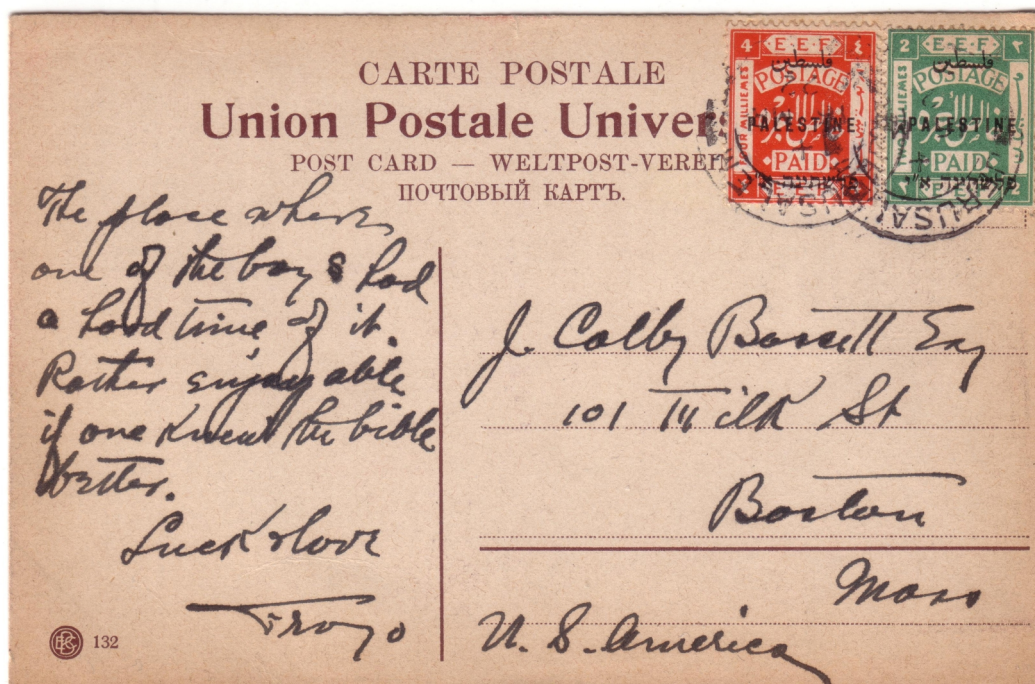 CARTE POSTALE
Union Postale Univer
POST CARD — WELTPOST-VEREI
ПОЧТОВЫЙ КАРТЪ.
4 E.E.F. ٤
فلسطين
POSTAGE
PALESTINE
PAID
2 E.E.F. ٢
فلسطين
POSTAGE
TWO MILLIEMES
PALESTINE
PAID
The place where
one of the boys had
a hard time of it.
Rather enjoyable
if one knew the bible
better.
Luck & love
J. Colby Bassett Esq
101 Milk St
Boston
Mass
U. S. America
132